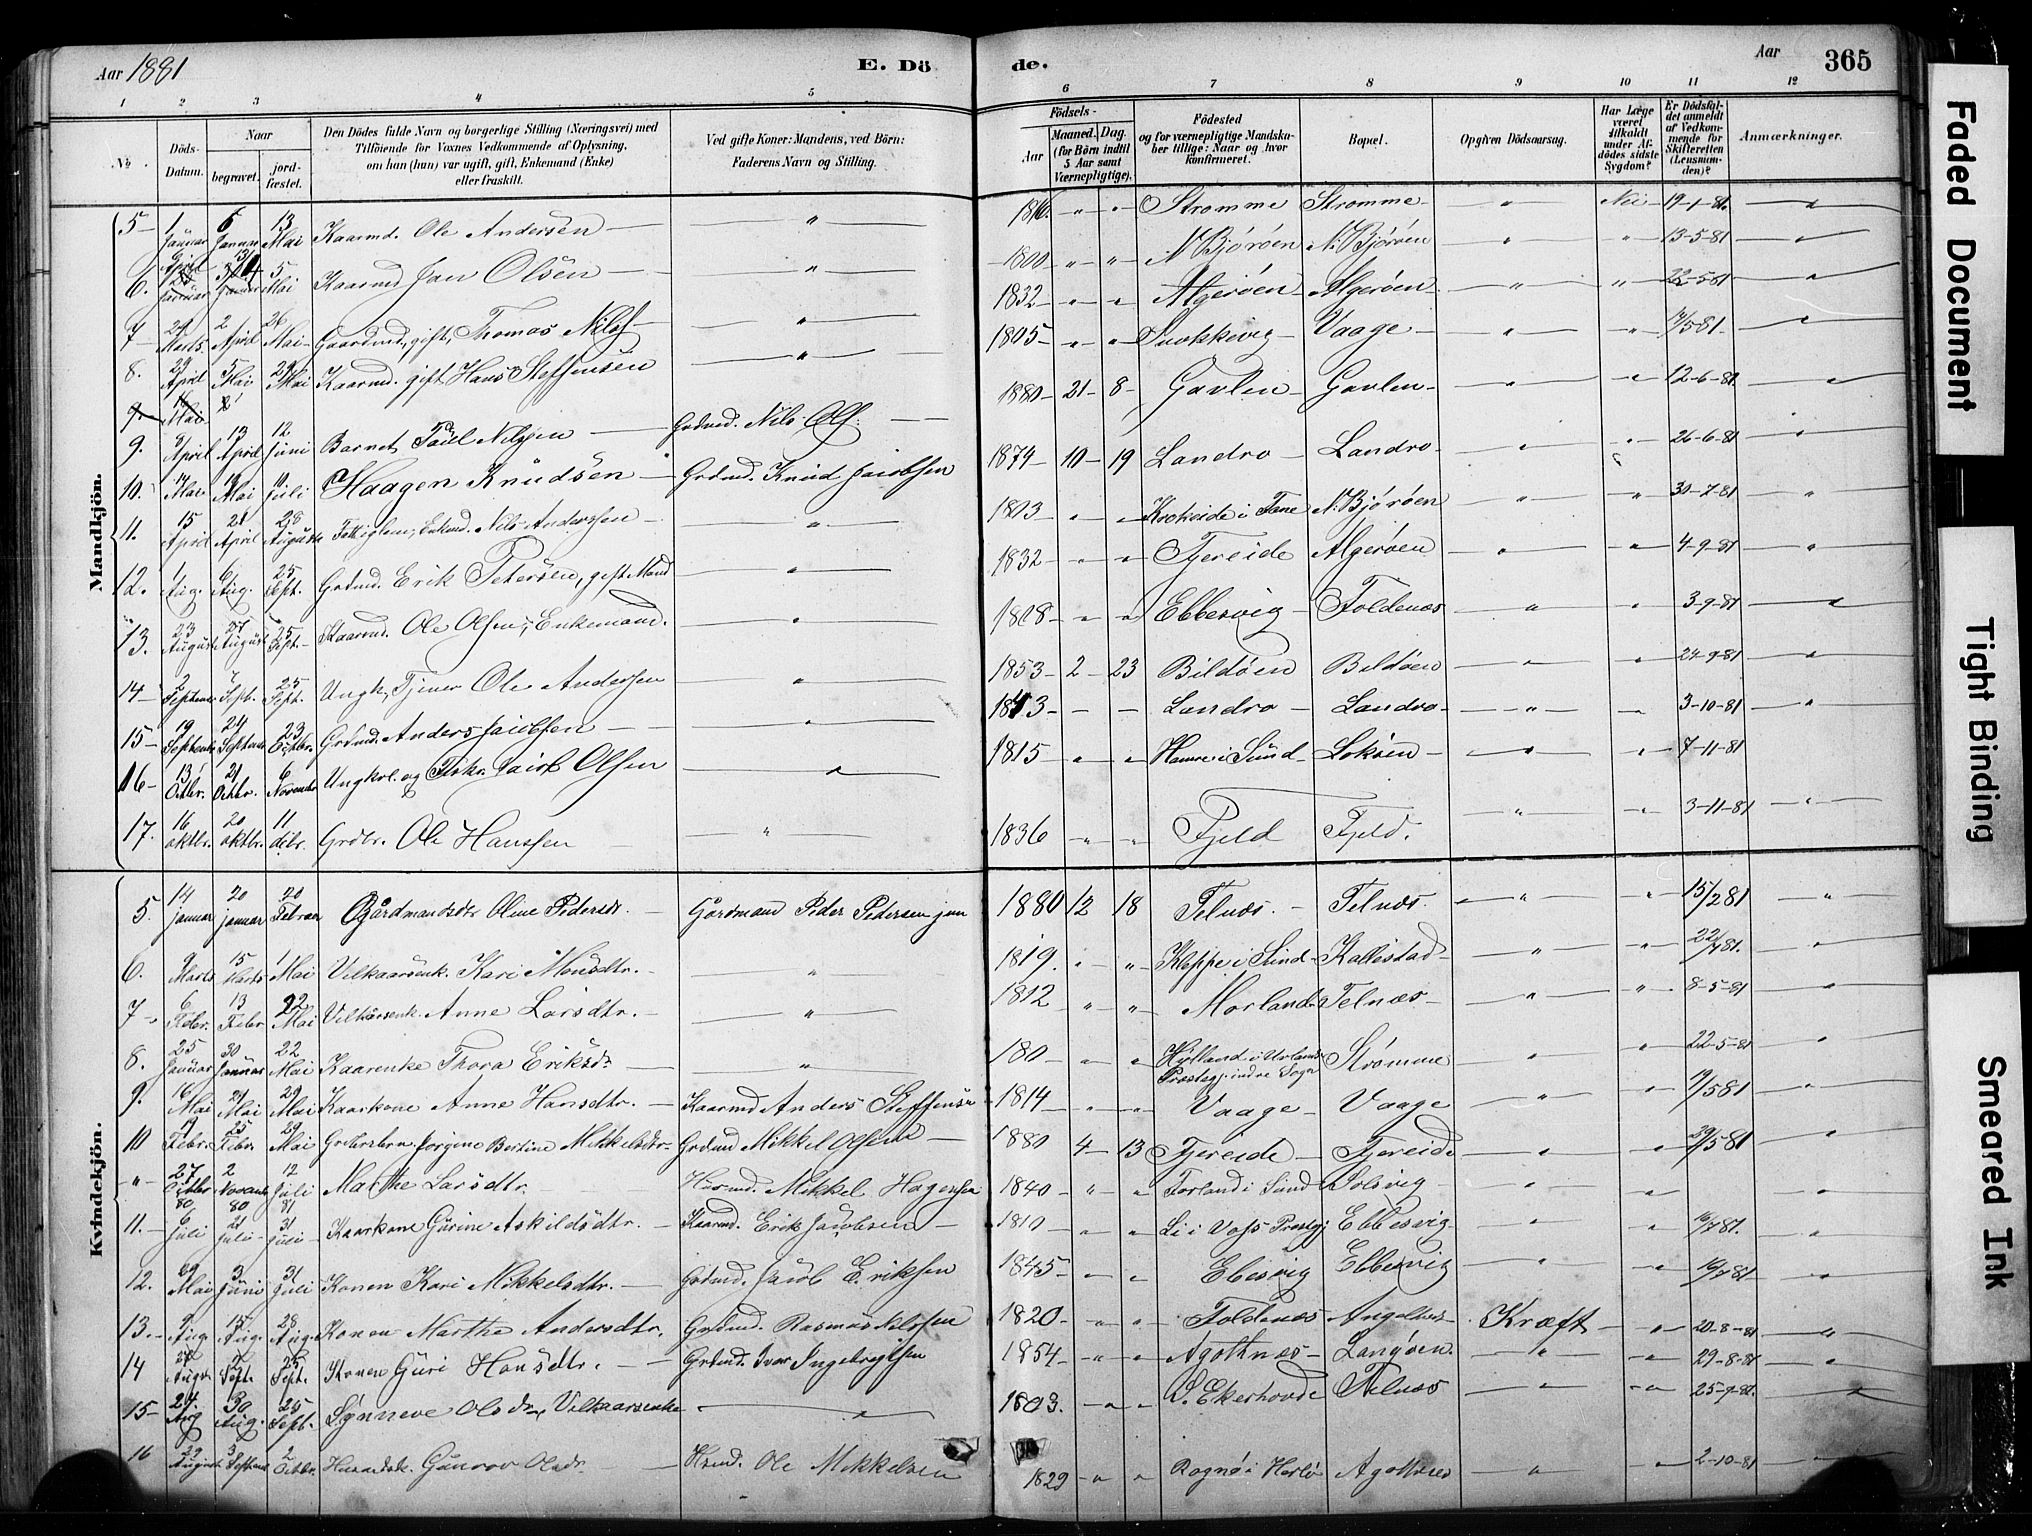 Aar 1881
E. Dö
de.
Aar
365
1 2 3 4 5 6 7 8 9 10 11 12
No
Döds-Datum.
Naar
begravet.
jordfæstet.
Den Dödes fulde Navn og borgerlige Stilling (Næringsvei) med
Tilföiende for Voxnes Vedkommende af Oplysning,
om han (hun) var ugift, gift, Enkemand (Enke)
eller fraskilt.
Ved gifte Koner: Mandens, ved Börn:
Faderens Navn og Stilling.
Födsels-
Aar
Maaned. Dag.
(for Börn indtil
5 Aar samt
Værnepligtige).
Födested
og for værnepligtige Mandska-
ber tillige: Naar og hvor
konfirmeret.
Bopæl.
Opgiven Dödsaarsag.
Har Læge
været
tilkaldt
under Af-
dödes sidste
Sygdom?
Er Dödsfal-
det anmeldt
af Vedkom-
mende for
Skifteretten
(Lensman-
den)?
Anmærkninger.
Mandkjön.
5 1 Januar 6 Januar 13 Mai Kaarmd. Ole Andersen " Strømme Strømme " Nei 19-1-81 "
6. April 5 Mai Kaarmd Jan Olsen " 1800 " " N. Bjørøen N. Bjørøen " " 13-5-81 "
7 Marts 2 April 26 Mai Gaardmd, gift, Thomas Nilss " 1832 " " Algerøen Algerøen " " 22-5-81 "
8. 29 April 5 Mai 29 Mai Kaarmd. gift Hans Steffensen " 1805 " " Vaage " " 19/5 81 "
9. April 13 April 12 Juni Barnet Paul Nilssen Grdmd. Nils Ols. 1880 21 8 Gavlen Gavlen " " 12-6-81 "
10. Mai 19 Mai 10 Juli Haagen Knudsen Grdmd. Knud Jacobsen 1874 10 19 Landro Landro " " 26-6-81 "
11. 15 April 21 April 28 August Fattiglem, Enkmd. Nils Anderssen " 1803 " " Krokeide i Fane N. Bjørøen " " 30-7-81 "
12. 1 Aug. 6 Aug. 25 Sept. Grdmd. Erik Petersen, gift Mand " 1832 " " Tjereide Algerøen " " 4-9-81 "
13. 23 August 27 August 25 Sept. Kaarmd. Ole Olsen, Enkemand. " 1818 " " Ebbesvig Foldenæs " " 3-9-81 "
14 2 Septembr 7 Sept. 25 Sept. Ungk, Tjener Ole Andersen " 1853 2 23 Bildøen Bildøen " " 24-9-81 "
15 19 Septembr 24 Septembr 23 Octbr. Grdmd. Anders Jacobsen " Landro Landro " 3-10-81 "
16 13 Octbr. 21 Octbr. 6 Novembr Ungkrl. og Fisker Jacob Olsen " 1815 " " Hamre i Sund Loksen " " 7-11-81
17. 16 oktbr. 20 oktbr. 11 debr. Grdbr. Ole Hanssen " 1836 " " Fjeld Fjeld. " " 3-11-81 "
Kvindekjön.
5. 14 januar 20 januar 20 Februar Gårdmandsdr Oline Pedersdr. Gårdmand Peder Pedersen jun 1880 12 18 Telnæs. Telnæs. " " 15/2 81 "
6. 9 Marts 15 Marts 1 Mai Vilkaarsenk. Kari Monsdtr. " 1819. " " Kleppe i Sund Kallestad " " "
7 6 Febr. 13 Febr 22 Mai Vilkårsenk. Anne Larsdtr. " 1812 " " Morland Telnæs " " 8-5-81 "
8. 25 Januar 30 Januar 22 Mai Kaarenke Thora Eriksdr " 180 " " Hylland i Urlands
Præstegj. indre Sogn Strømme " " 22-5-81 "
9. 6 Mai 21 Mai 29 Mai Kaarkone Anne Hansdtr. Kaarmd Anders Steffensen 1814 " " Vaage Vaage " " 19/5 81 "
10 Febr. 25 Febr 29 Mai Grdbrsbrn. Jørgine Bertine Mikkelsdtr Grdmd Mikkel Olsen 1880 4 13 Tjereide Tjereide " " 29/5 81 "
" 27 Octbr 80 2 Novembr 80 12 Juli 81 Marthe Larsdtr. Husmd. Mikkel Hagensen 1840 " " Forland i Sund Solsvig " " "
11. 6 Juli 21 Juli 31 Juli Kaarkone Gurine Askildsdtr. Kaarmd. Erik Jacobsen 1810 " " Li i Voss Prestgj Ebbesvig " " 16/7 81. "
12. 29 Mai 3 Juni 31 Juli Konen Kari Mikkelsdtr. Grdmd. Jacob Eriksen 1845 " " Ebesvig Ebbesvig " " 16/7 81 "
13. 9 Aug. 15 Aug. 28 Aug. Konen Marthe Andersdtr. Grdmd. Rasmus Nilssen 1820 " " Foldenæs Angeltvet Kræft " 20-8-81 "
14 Augus 2 Sept. 25 Sept. Konen Guri Hansdtr. Grdmd. Ivar Ingebrigtsen 1854 " " Agotnæs Langøen. " " 29-8-81 "
15 24 Aug 30 Aug. 25 Sept. Synneve Olsdr, Vilkaarsenke " 1803. " " V. Ekerhovde Telnæs " " 25-9-81 "
16 29 August 3 Septemb 2 Octbr. Gunvor Olsdr. Hsmd. Ole Mikkelsen 1829 " " Rognø i Herlø Agotnæs " " 2-10-81 "
Faded Document
Tight Binding
Smeared Ink